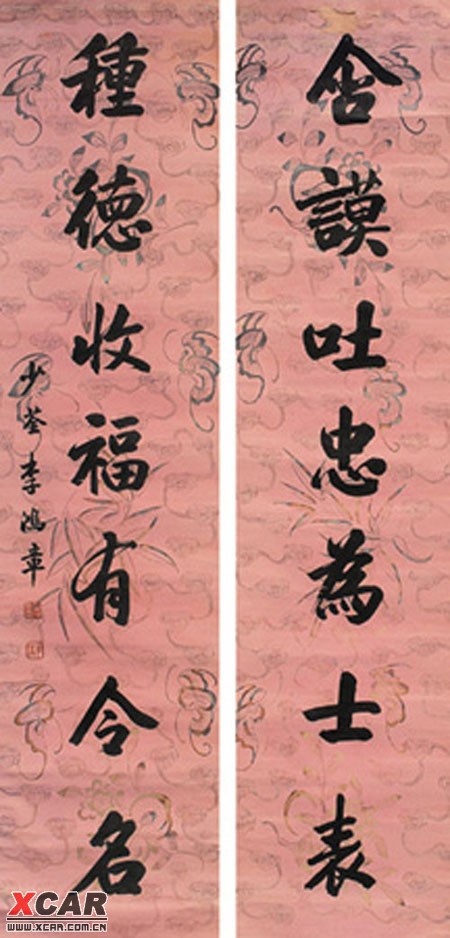 含謨吐忠為士表
種德收福有令名
少荃李鴻章
XCAR
WWW.XCAR.COM.CN